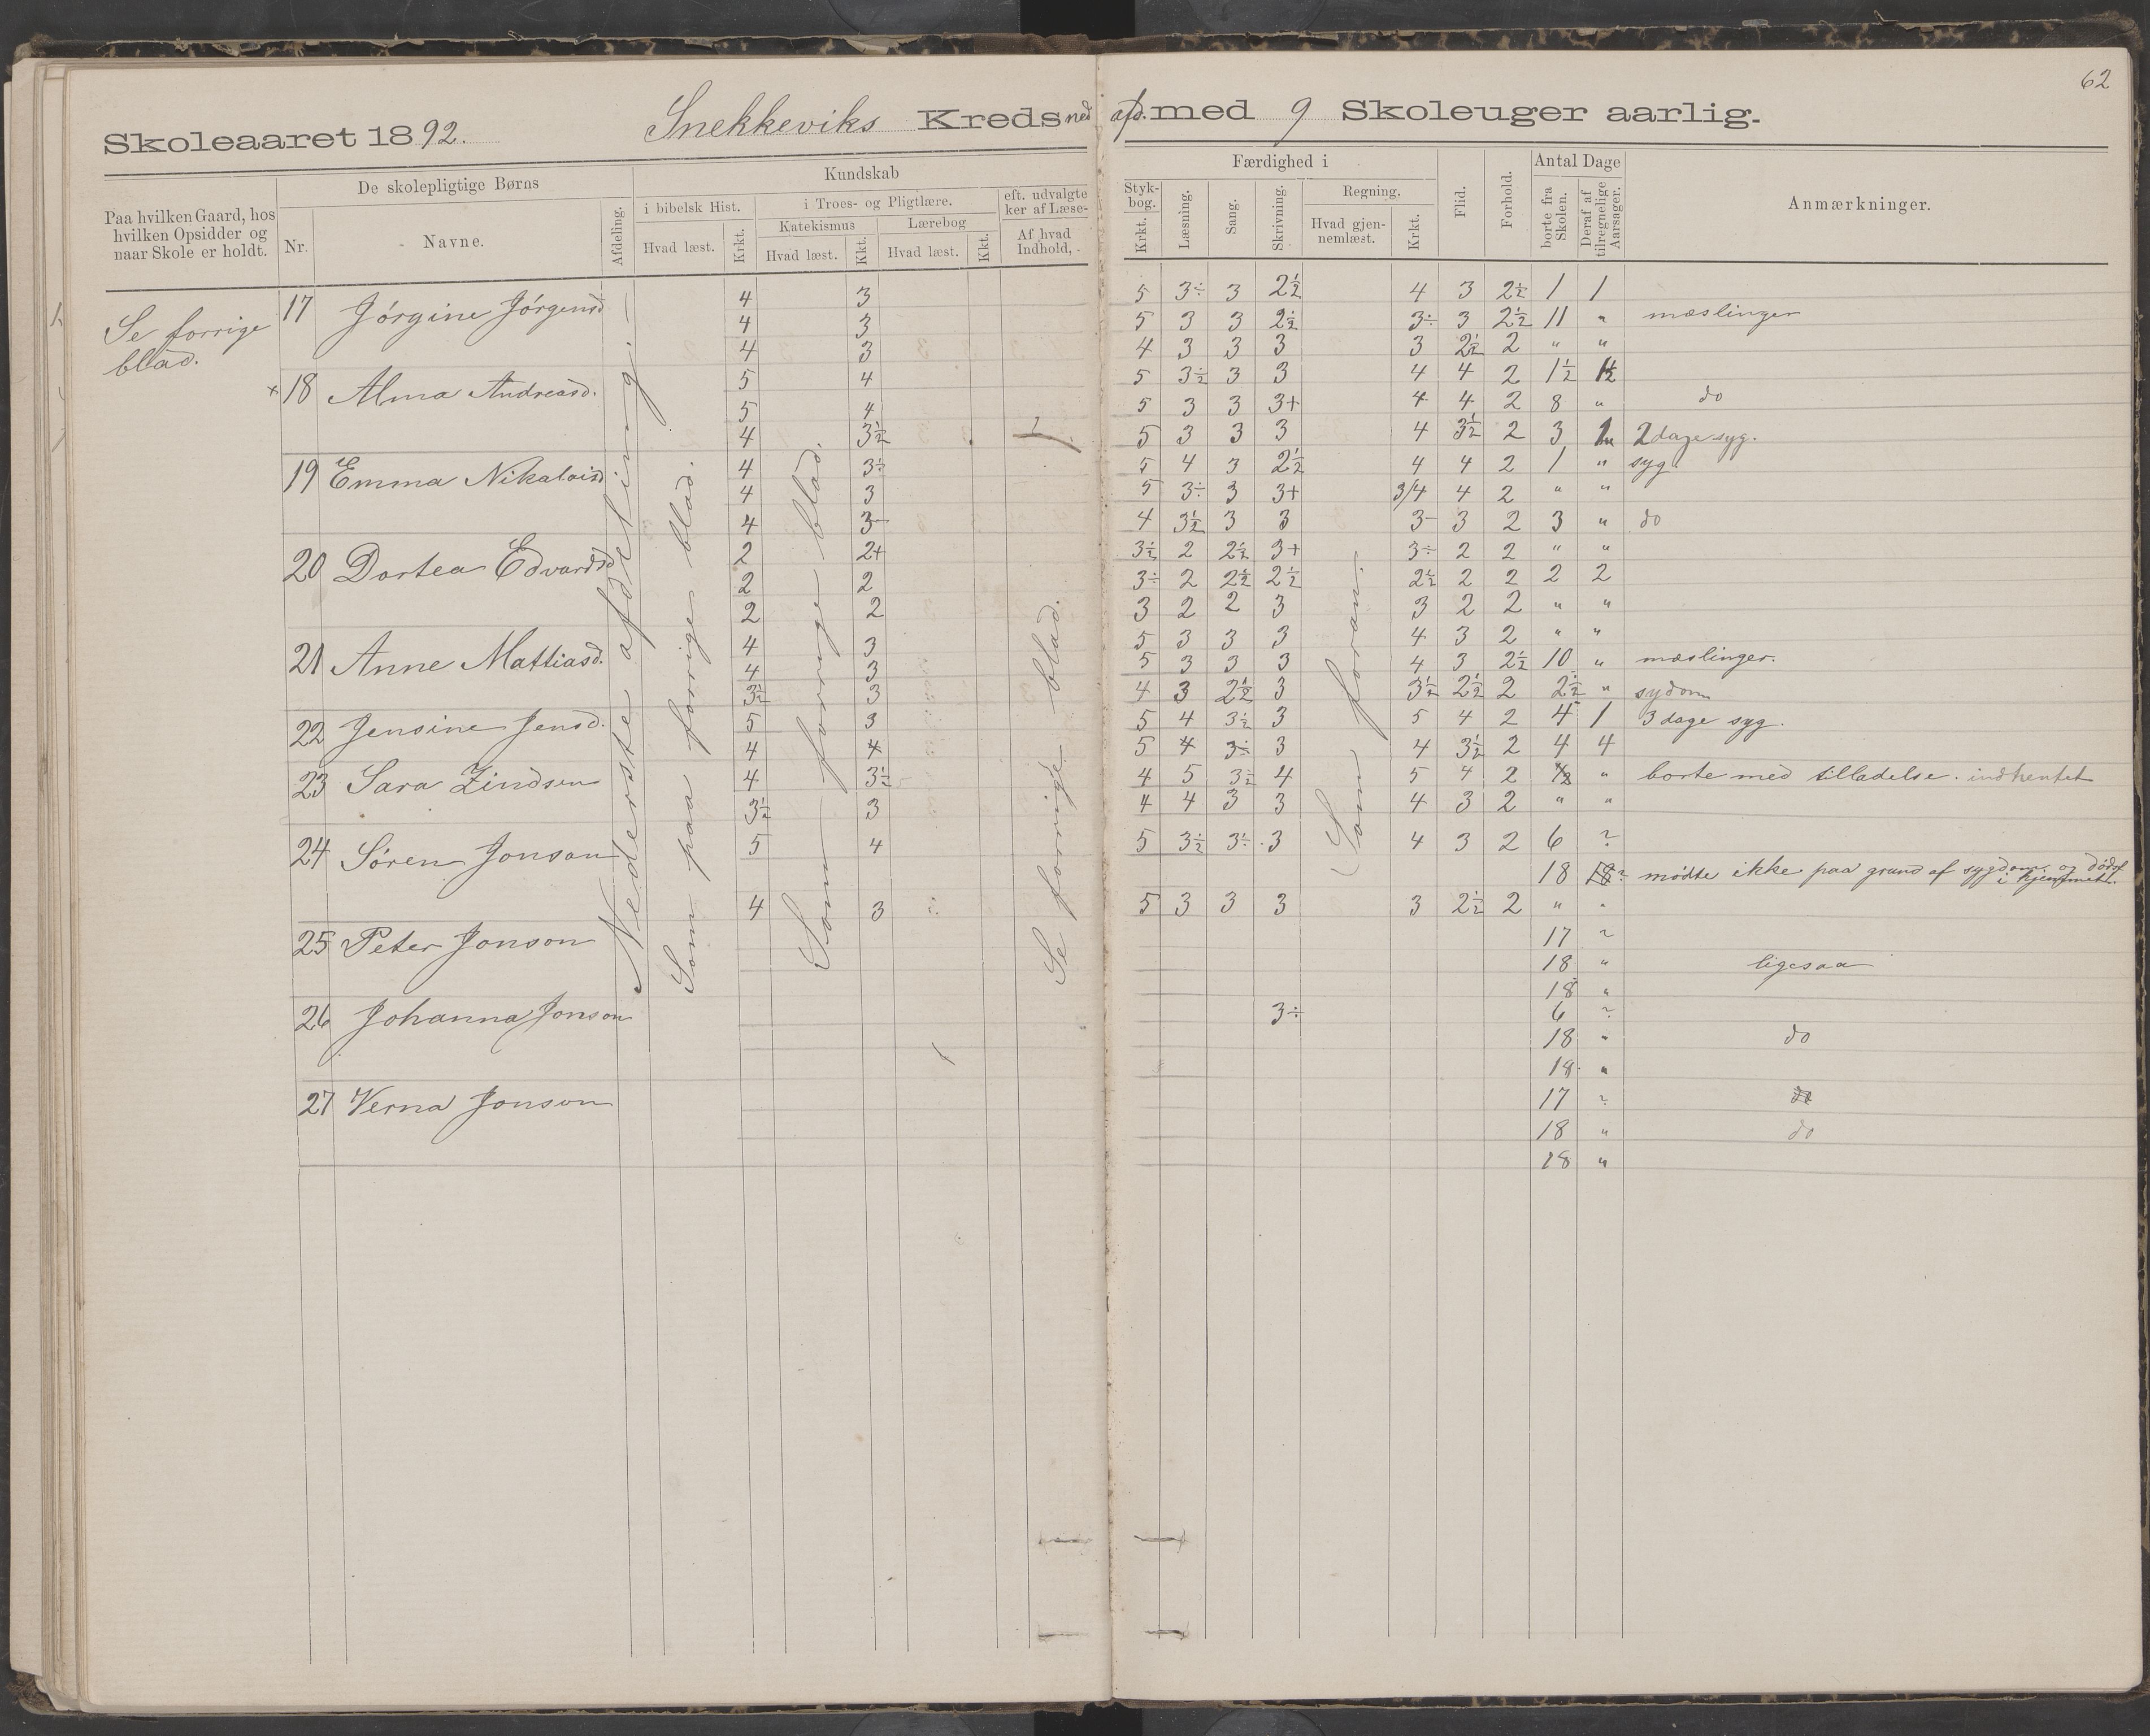 62
Skoleaaret 1892. Snekkeviks Kreds ned afd. med 9 Skoleuger aarlig.
Paa hvilken Gaard, hos hvilken Opsidder og naar Skole er holdt.
De skolepligtige Børns
Nr. Navne. Afdeling.
Kundskab
i bibelsk Hist. i Troes- og Pligtlære. eft. udvalgte
ker af Læse-
Katekismus Lærebog
Hvad læst. Krkt. Hvad læst. Kkt. Hvad læst. Kkt. Af hvad Indhold,
Færdighed i
Styk-bog. Krkt. Læsning. Sang. Skrivning. Regning. Hvad gjen-nemlæst. Krkt.
Flid. Forhold. Antal Dage borte fra Skolen. Deraf af tilregnelige Aarsager.
Anmærkninger.
Se forrige
blad.
Nederste afdeling.
Som paa forriges blad.
Som forrige blad.
Se forrige blad.
Som foran.
17 Jórgine Jórgensd 4 3 5 3÷ 3 2½ 4 3 2½ 1 1
4 3 5 3 3 2½ 3÷ 3 2½ 11 " mæslinger
4 3 4 3 3 3 3 2½ 2 " "
18 Alma Andreasd. 5 4 5 3½ 3 3 4 4 2 1½ 1½
5 4 5 3 3 3+ 4 4 2 8 " do
4 3½ 5 3 3 3 4 3½ 2 3 2 dage syg.
19 Emma Nikolaisd 4 3÷ 5 4 3 2½ 4 4 2 1 " syg.
4 3 5 3÷ 3 3+ 3/4 4 2 " "
4 3 4 3½ 3 3 3- 3 2 3 " do
20 Dortea Edvardsd 2 2+ 3½ 2 2½ 3+ 3÷ 2 2 " "
2 2 3÷ 2 2½ 2½ 2½ 2 2 2 2
2 2 3 2 2 3 3 2 2 " "
21 Anne Mattiasd. 4 3 5 3 3 3 4 3 2 " "
4 3 5 3 3 3 4 3 2½ 10 " mæslinger.
3½ 3 4 3 2½ 3 3½ 2½ 2 2½ " sydom
22 Jensine Jensd. 5 3 5 4 3½ 3 5 4 2 4 1 3 dage syg.
4 4 5 4 3÷ 3 4 3½ 2 4 4
23 Sara Zindsen 4 3½ 4 5 3½ 4 5 4 2 " borte med tilladelse. indhentet
3½ 3 4 4 3 3 4 3 2 " "
24 Sóren Jonson 5 4 5 3½ 3÷ 3 4 3 2 6 ?
18 18? mödte ikke paa grund af sygdom og dódsf.
i hjemmet.
4 3 5 3 3 3 3 2½ 2 " "
25 Peter Jonson 17 ?
18 " ligesaa
18 "
26 Johanna Jonson 3÷ 6 ?
18 " do
18 "
27 Verna Jonson 17 ?
18 " do
18 "